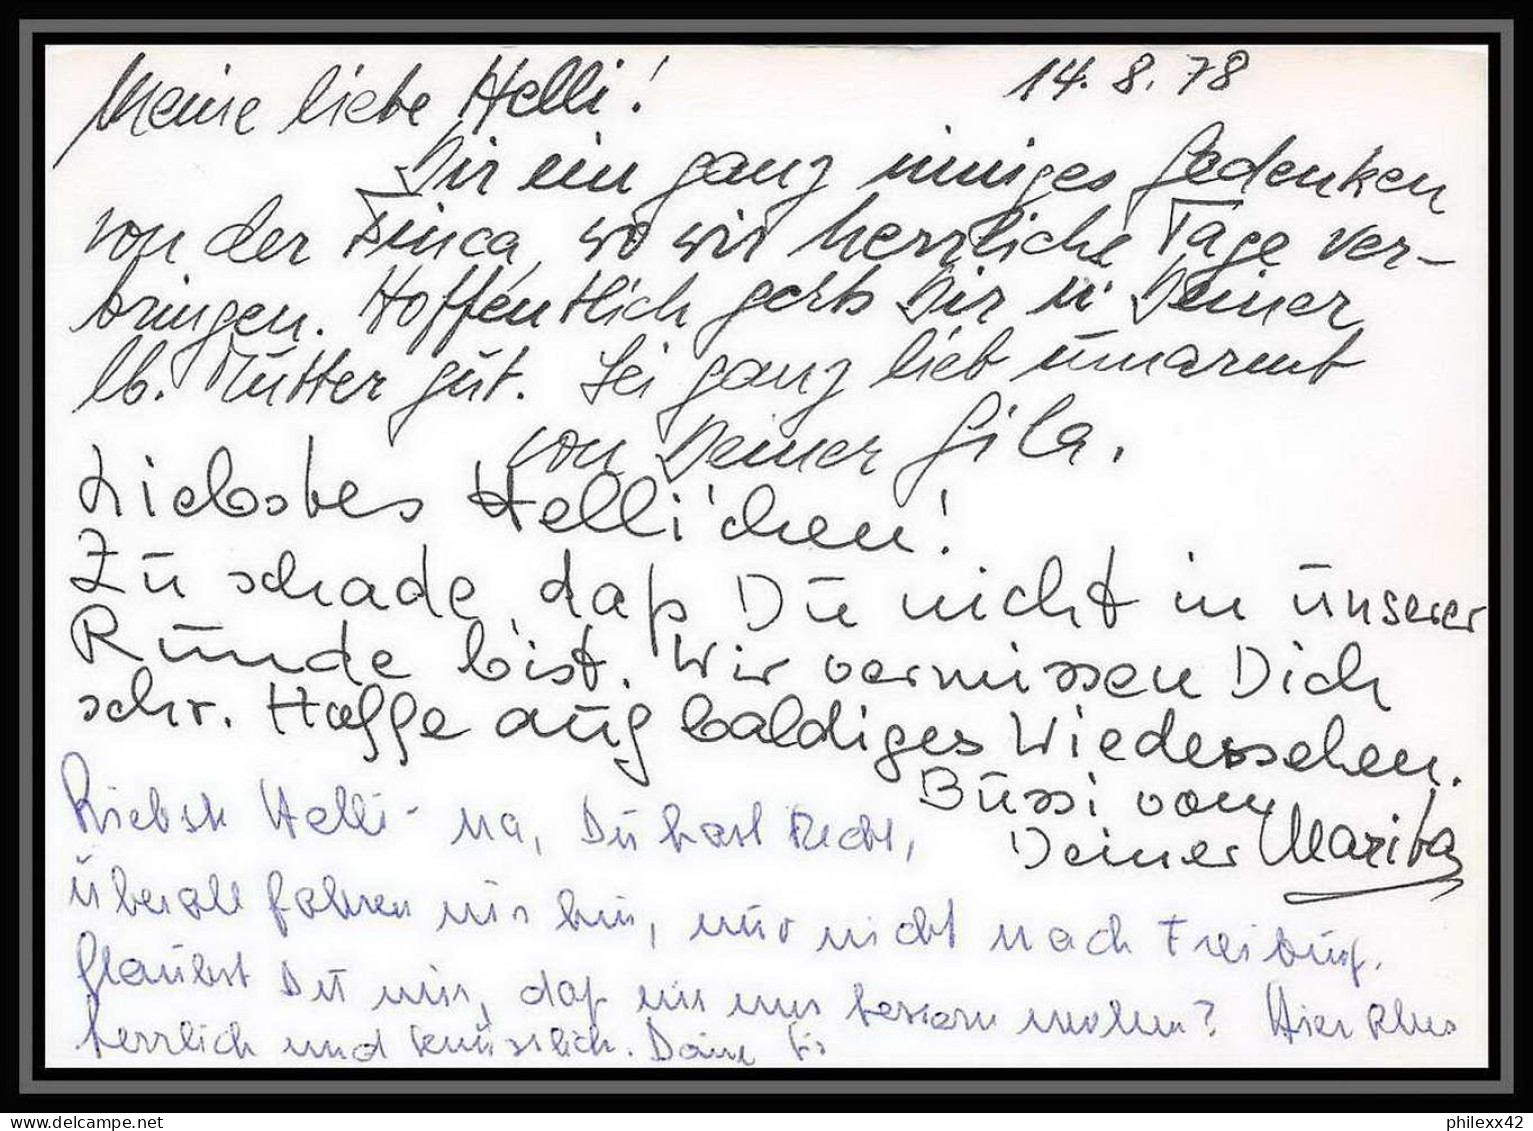 14.8.78
Meine liebe Helli!
Dir ein ganz inniges Gedenken
von der Finca, wo wir herrliche Tage ver-
bringen. Hoffentlich gehts Dir u. Deiner
lb. Mutter gut. Sei ganz lieb umarmt
von Deiner Gila.
Liebstes Helli'chen!
Zu schade, daß Du nicht in unserer
Runde bist. Wir vermissen Dich
sehr. Hoffe auf baldiges Wiedersehen.
Bussi von
Deiner Marita
Liebste Helli - na, Du hast Recht,
überall fahren wir hin, nur nicht nach Freiburg.
Glaubst Du mir, daß wir uns bessern wollen? Hier alles
herrlich und künstlich. Deine
delcampe.net
philexx42